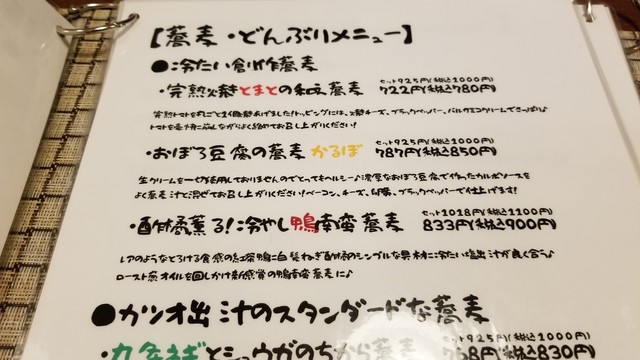 【蕎麦・どんぶりメニュー】
●冷たい創作蕎麦
セット925円(税込1000円)
・完熟焼きとまとの和え蕎麦 722円(税込780円)
完熟トマトを丸ごと1個焼き上げました!トッピングには、粉チーズ、ブラックペッパー、バルサミコクリームでさっぱり♪
トマトを崩しながらよく絡めてお召し上がりください!
セット925円(税込1000円)
・おぼろ豆腐の蕎麦 かるぼ 787円(税込850円)
生クリームを一切使用しておりませんのでとってもヘルシー♪濃厚なおぼろ豆腐で作ったカルボソースを
よく蕎麦汁と混ぜてお召し上がりください!ベーコン、チーズ、卵黄、ブラックペッパーで仕上げます!
セット1018円(税込1100円)
・酢橘薫る!冷やし鴨南蛮蕎麦 833円(税込900円)
レアのようなとろける食感の紅茶鴨に白髪ねぎ酢橘のシンプルな具材に冷たい塩出汁が良く合う♪
ロースト葱オイルを回しかけ新感覚の鴨南蛮蕎麦に♪
●カツオ出汁のスタンダードな蕎麦
セット925円(税込1000円)
・九条ネギとショウガのちから蕎麦 768円(税込830円)